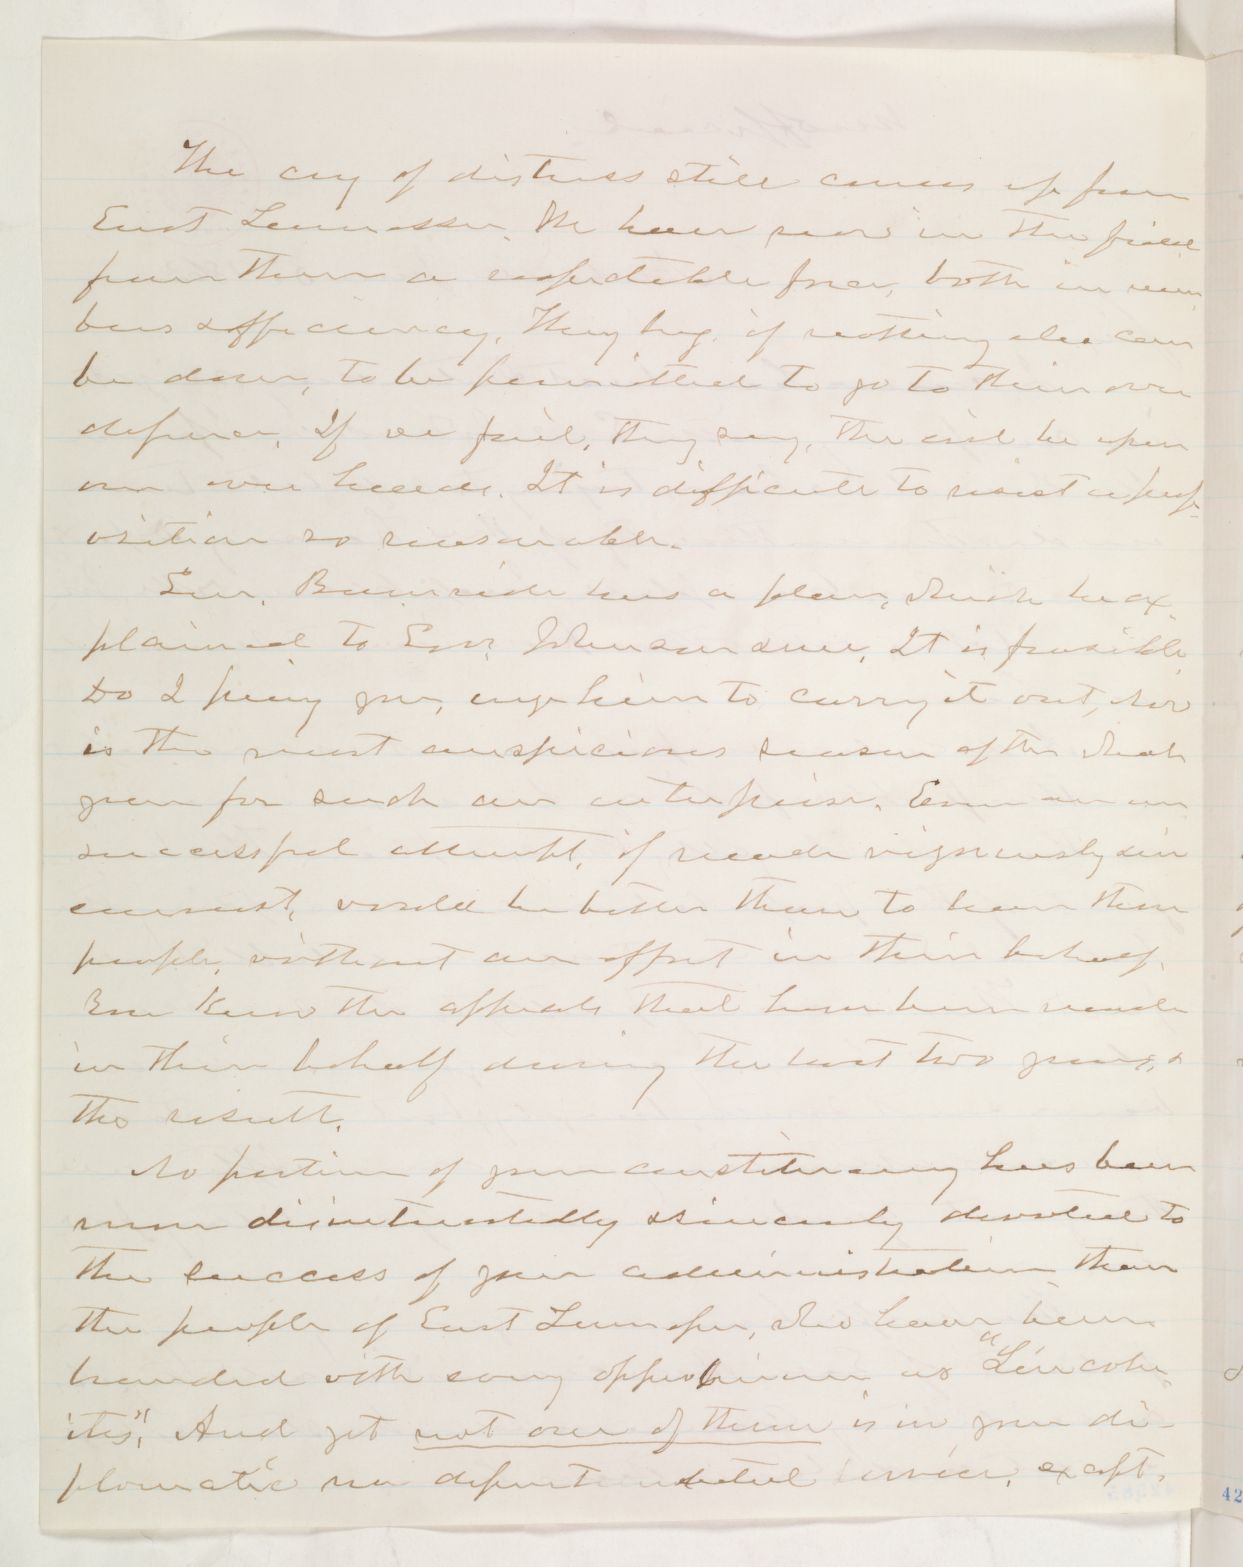 The cry of distress still comes up from
East Tennessee. We have now in the field
from there a respectable force, both in num
bers & efficiency. They beg, if nothing else can
be done, to be permitted to go to their own
defence. If we fail, they say, the evil be upon
our own heads. It is difficult to resist a prop-
osition so reasonable.
Gen. Burnside has a plan, which he ex-
plained to Gov. Johnson & me. It is feasible.
Do I pray you, urge him to carry it out, Now
is the most auspicious season of the whole
year for such an enterprise. Even an un
successful attempt, if made vigorously & in
earnest, would be better than to leave these
people, without an effort in their behalf.
You know the appeals that have been made
in their behalf during the last two years, &
the result.
No portion of your constituency has been
more disinterestedly & sincerely devoted to
the success of your administration than
the people of East Tennessee, who have been
branded with every opprobrium as "Lincoln-
ites", And yet not one of them is in your di-
plomatic nor departmental service, except,
42